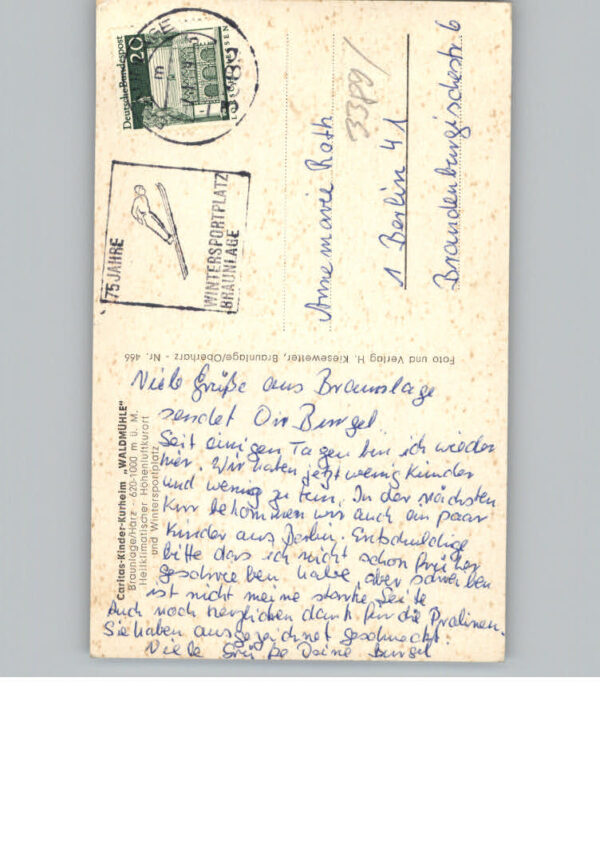 Deutsche Bundespost
20
3389
75 JAHRE
WINTERSPORTPLATZ
BRAUNLAGE
Annemarie Rath
1 Berlin 41
Brandenburgischestr 6
3389/
Foto und Verlag H. Kiesewetter, Braunlage/Oberharz - Nr. 466
Caritas-Kinder-Kurheim „WALDMÜHLE"
Braunlage/Harz - 620-1000 m ü. M.
Heilklimatischer Höhenluftkurort
und Wintersportplatz
Viele Grüße aus Braunslage
sendet Dir Bürgel.
Seit einigen Tagen bin ich wieder
hier. Wir haben jetzt wenig Kinder
und wenig zu tun. In der nächsten
Kur bekommen wir auch ein paar
Kinder aus Berlin. Entschuldige
bitte das ich nicht schon früher
geschrieben habe, aber schreiben
ist nicht meine starke Seite
Auch noch herzlichen dank für die Pralinen.
Sie haben ausgezeichnet geschmeckt.
Viele Grüße Deine